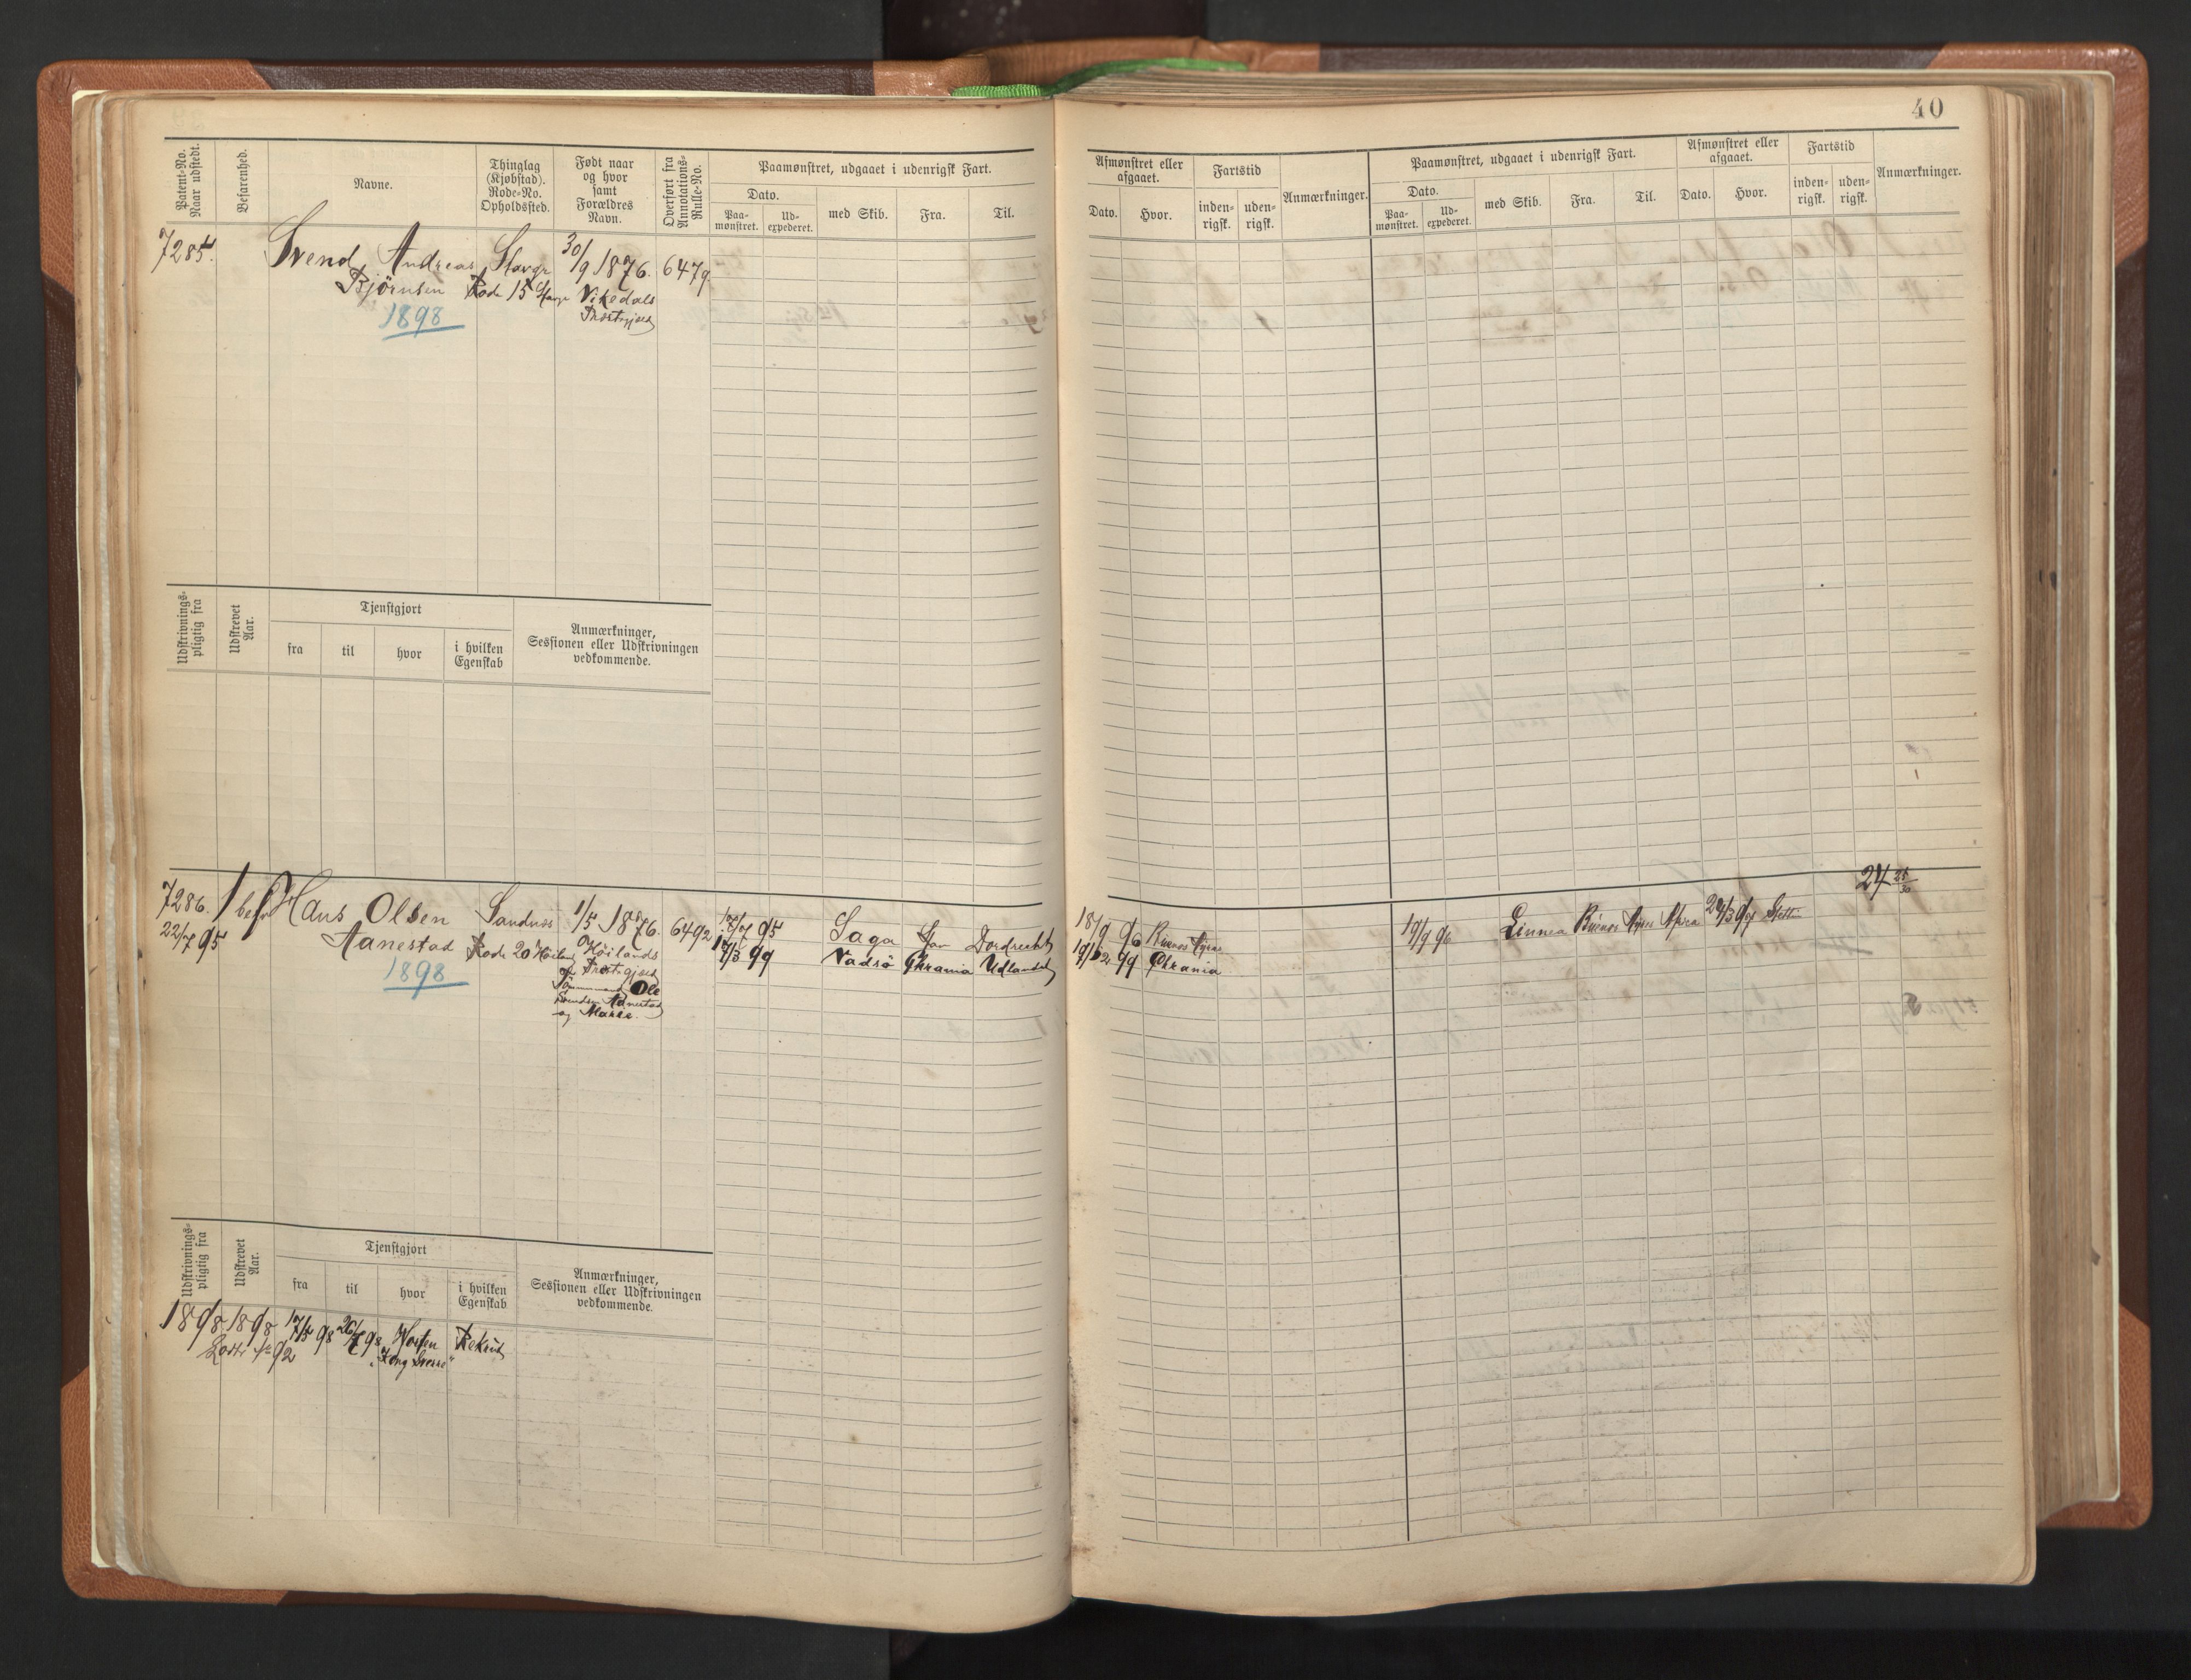 40
Patent-No. Naar udstedt.
Befarenhed.
Navne.
Thinglag (Kjøbstad). Rode-No. Opholdssted.
Født naar og hvor samt Forældres Navn.
Overført fra Annotations-Rulle-No.
Paamønstret, udgaaet i udenrigsk Fart.
Dato.
Paa-mønstret.
Ud-expederet.
med Skib.
Fra.
Til.
Afmønstret eller afgaaet.
Dato.
Hvor.
Fartstid
inden-rigsk.
uden-rigsk.
Anmærkninger.
Paamønstret, udgaaet i udenrigsk Fart.
Dato.
Paa-mønstret.
Ud-expederet.
med Skib.
Fra.
Til.
Afmønstret eller afgaaet.
Dato.
Hvor.
Fartstid
inden-rigsk.
uden-rigsk.
Anmærkninger.
7285.
Svend Andreas
Björnsen
1898
Stavgr
Rode 15
30/9 1876.
Vikedals
Præstegjeld
6479.
Udskrivnings-pligtig fra
Udskrevet Aar.
Tjenstgjort
fra
til
hvor
i hvilken Egenskab
Anmærkninger, Sessionen eller Udskrivningen vedkommende.
7286.
22/7 95
1 bef
Hans Olsen
Aanestad
1898
Sandnæs
Rode 20 Höiland
1/5 1876.
Höilands
Præstegjeld
Ole
Svendsen Aanestad
og Marie.
6492
95
Saga
Dordrecht
99
Vadsö
Chrania
Udlandet
18/9 96
Buenos Ayres
99
Chrania
19/9 96
Linnea
Buenos Ayres
Stettin
24 25/30
Udskrivnings-pligtig fra
Udskrevet Aar.
Tjenstgjort
fra
til
hvor
i hvilken Egenskab
Anmærkninger, Sessionen eller Udskrivningen vedkommende.
1898
1898
17/5 98
98
Horten
Rekrut
92
"Kong Sverre"